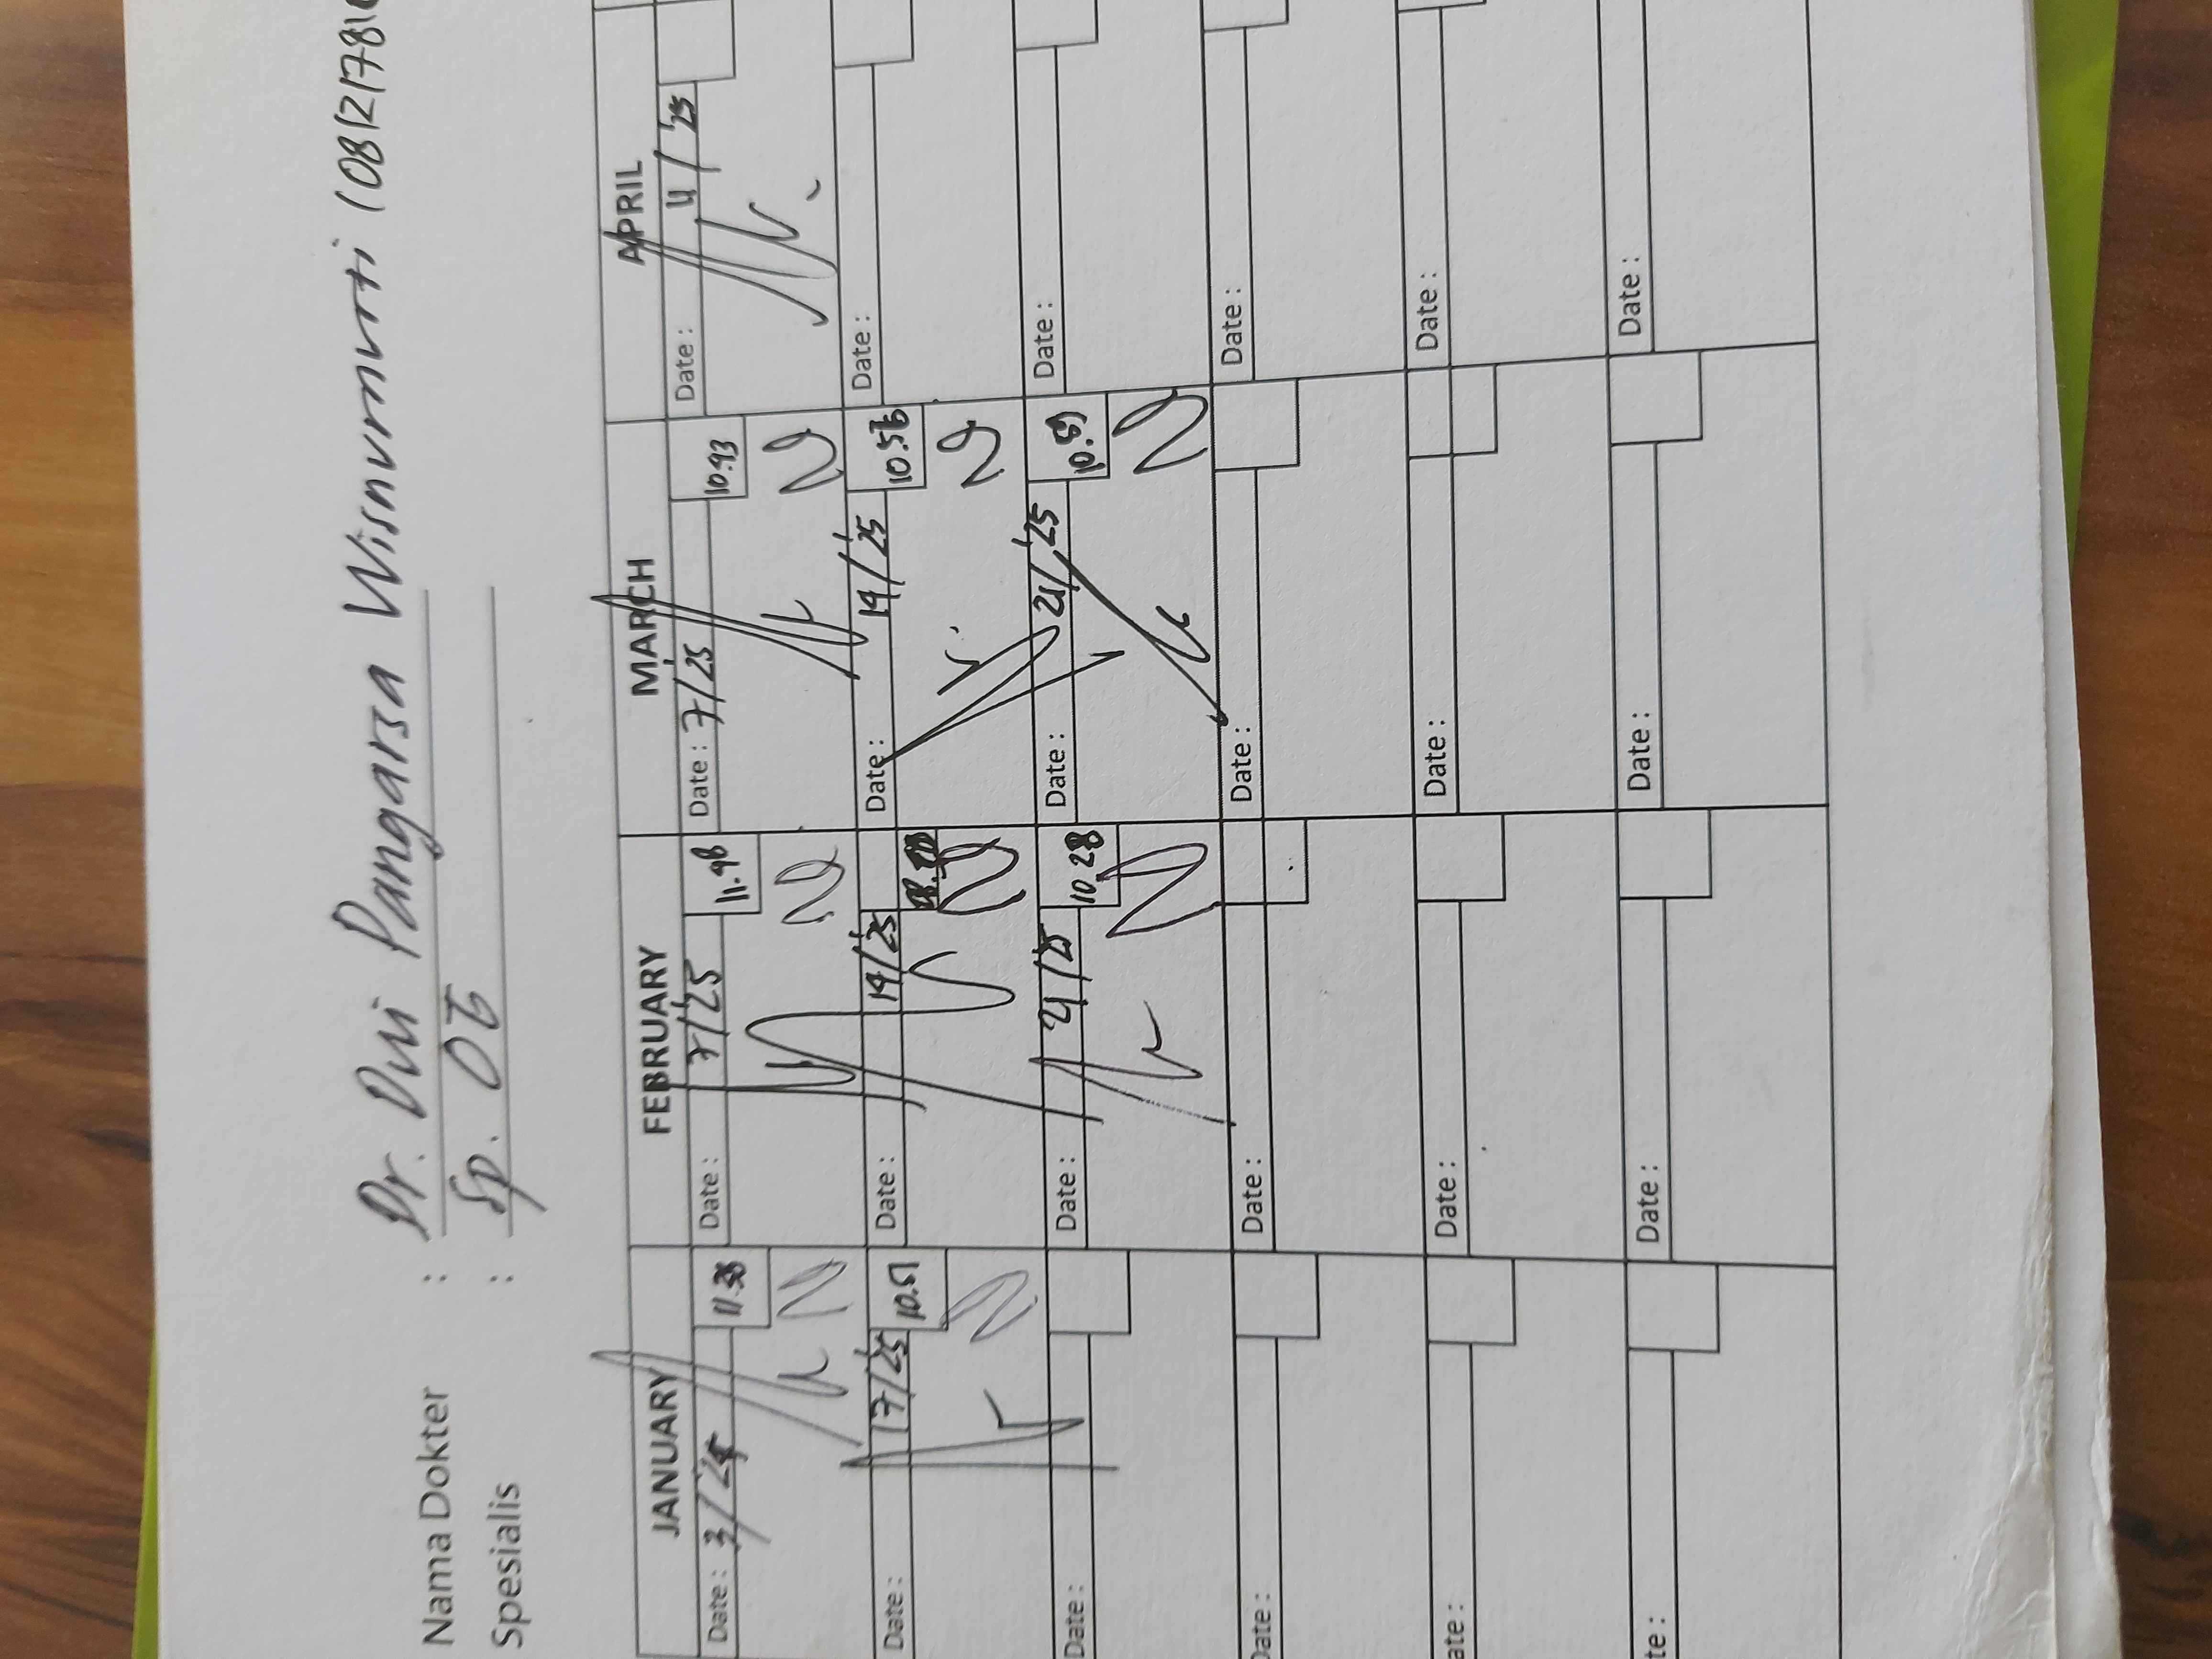 Nama Dokter : Dr. Dwi Pangarsa Wisnumurti (081217781
Spesialis : Sp. OT
JANUARY FEBRUARY MARCH APRIL
Date : 3/25 11.38 Date : 7/25 11.48 Date : 7/25 10.43 Date : 4/25
Date : 17/25 10.51 Date : 14/25 Date : 14/25 10.56 Date :
Date : Date : 21/25 10.28 Date : 21/25 10.59 Date :
Date : Date : Date : Date :
ate : Date : Date : Date :
te : Date : Date : Date :